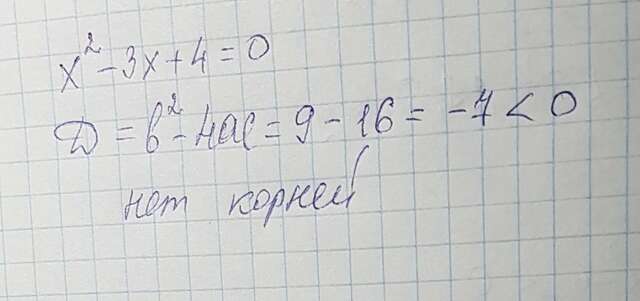 x² - 3x + 4 = 0
D = b² - 4ac = 9 - 16 = -7 < 0
нет корней